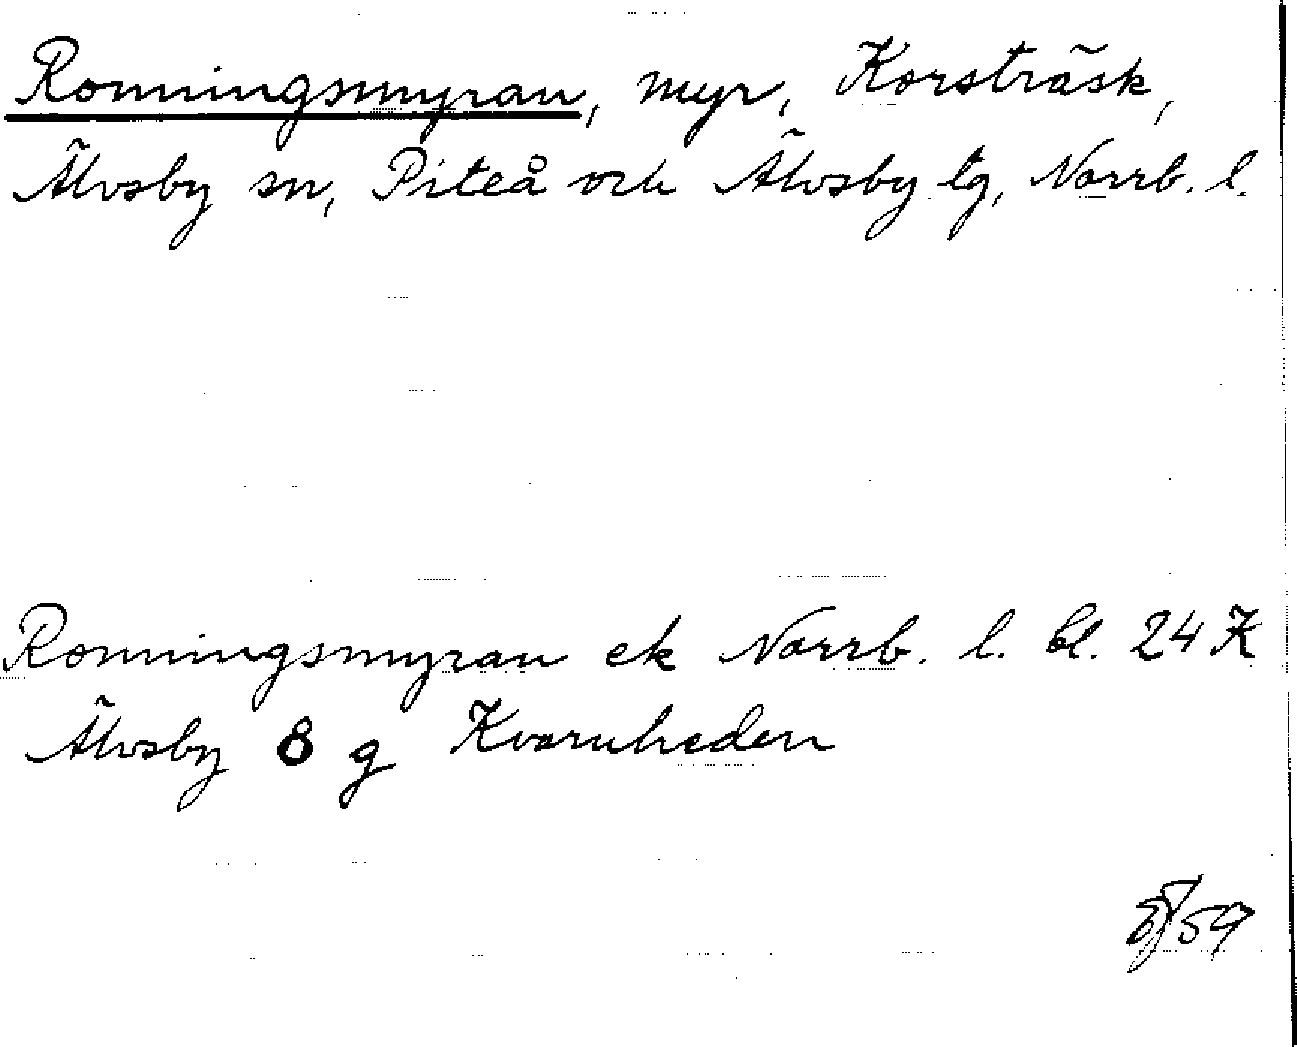 Ronningsmyran, myr, Korsträsk,
Älvsby sn, Piteå och Älvsby tg, Norrb. l.
Ronningsmyran ek Norrb. l. bl. 24 K
Älvsby 8 g Kvarnheden
59